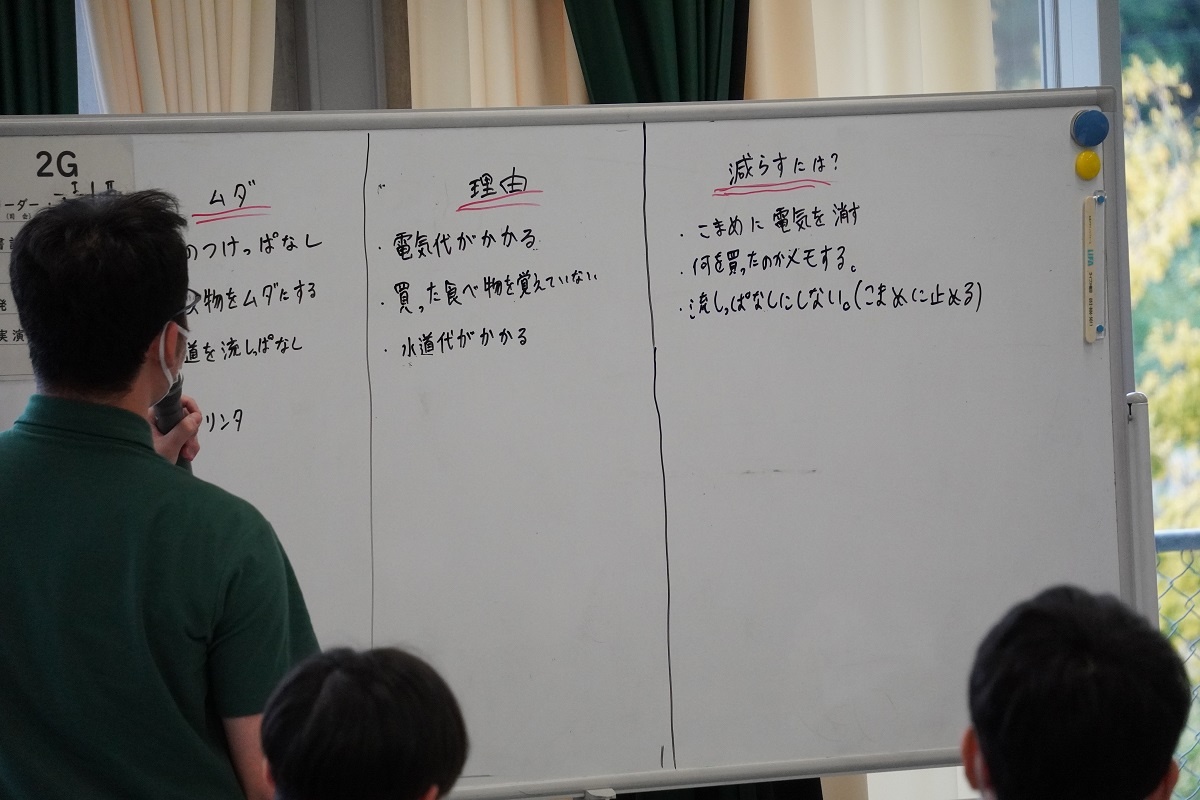 2G
ムダ
のつけっぱなし
物をムダにする
道を流しっぱなし
リンタ
理由
・電気代がかかる
・買った食べ物を覚えていない
・水道代がかかる
減らすには？
・こまめに電気を消す
・何を買ったのかメモする。
・流しっぱなしにしない。(こまめに止める)